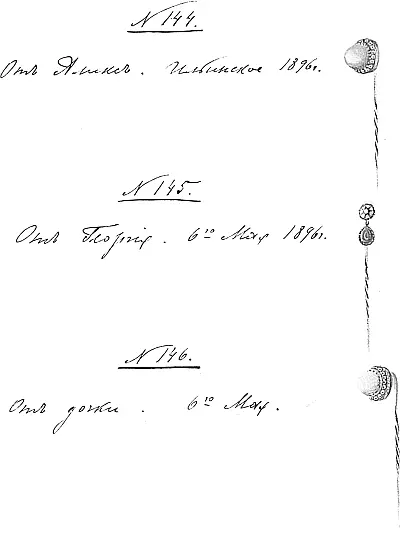 N 144.
Отъ Аликсъ. Ильинское 1896г.
N 145.
Отъ Георгія. 6го Мая 1896г.
N 146.
Отъ дочки. 6го Мая.